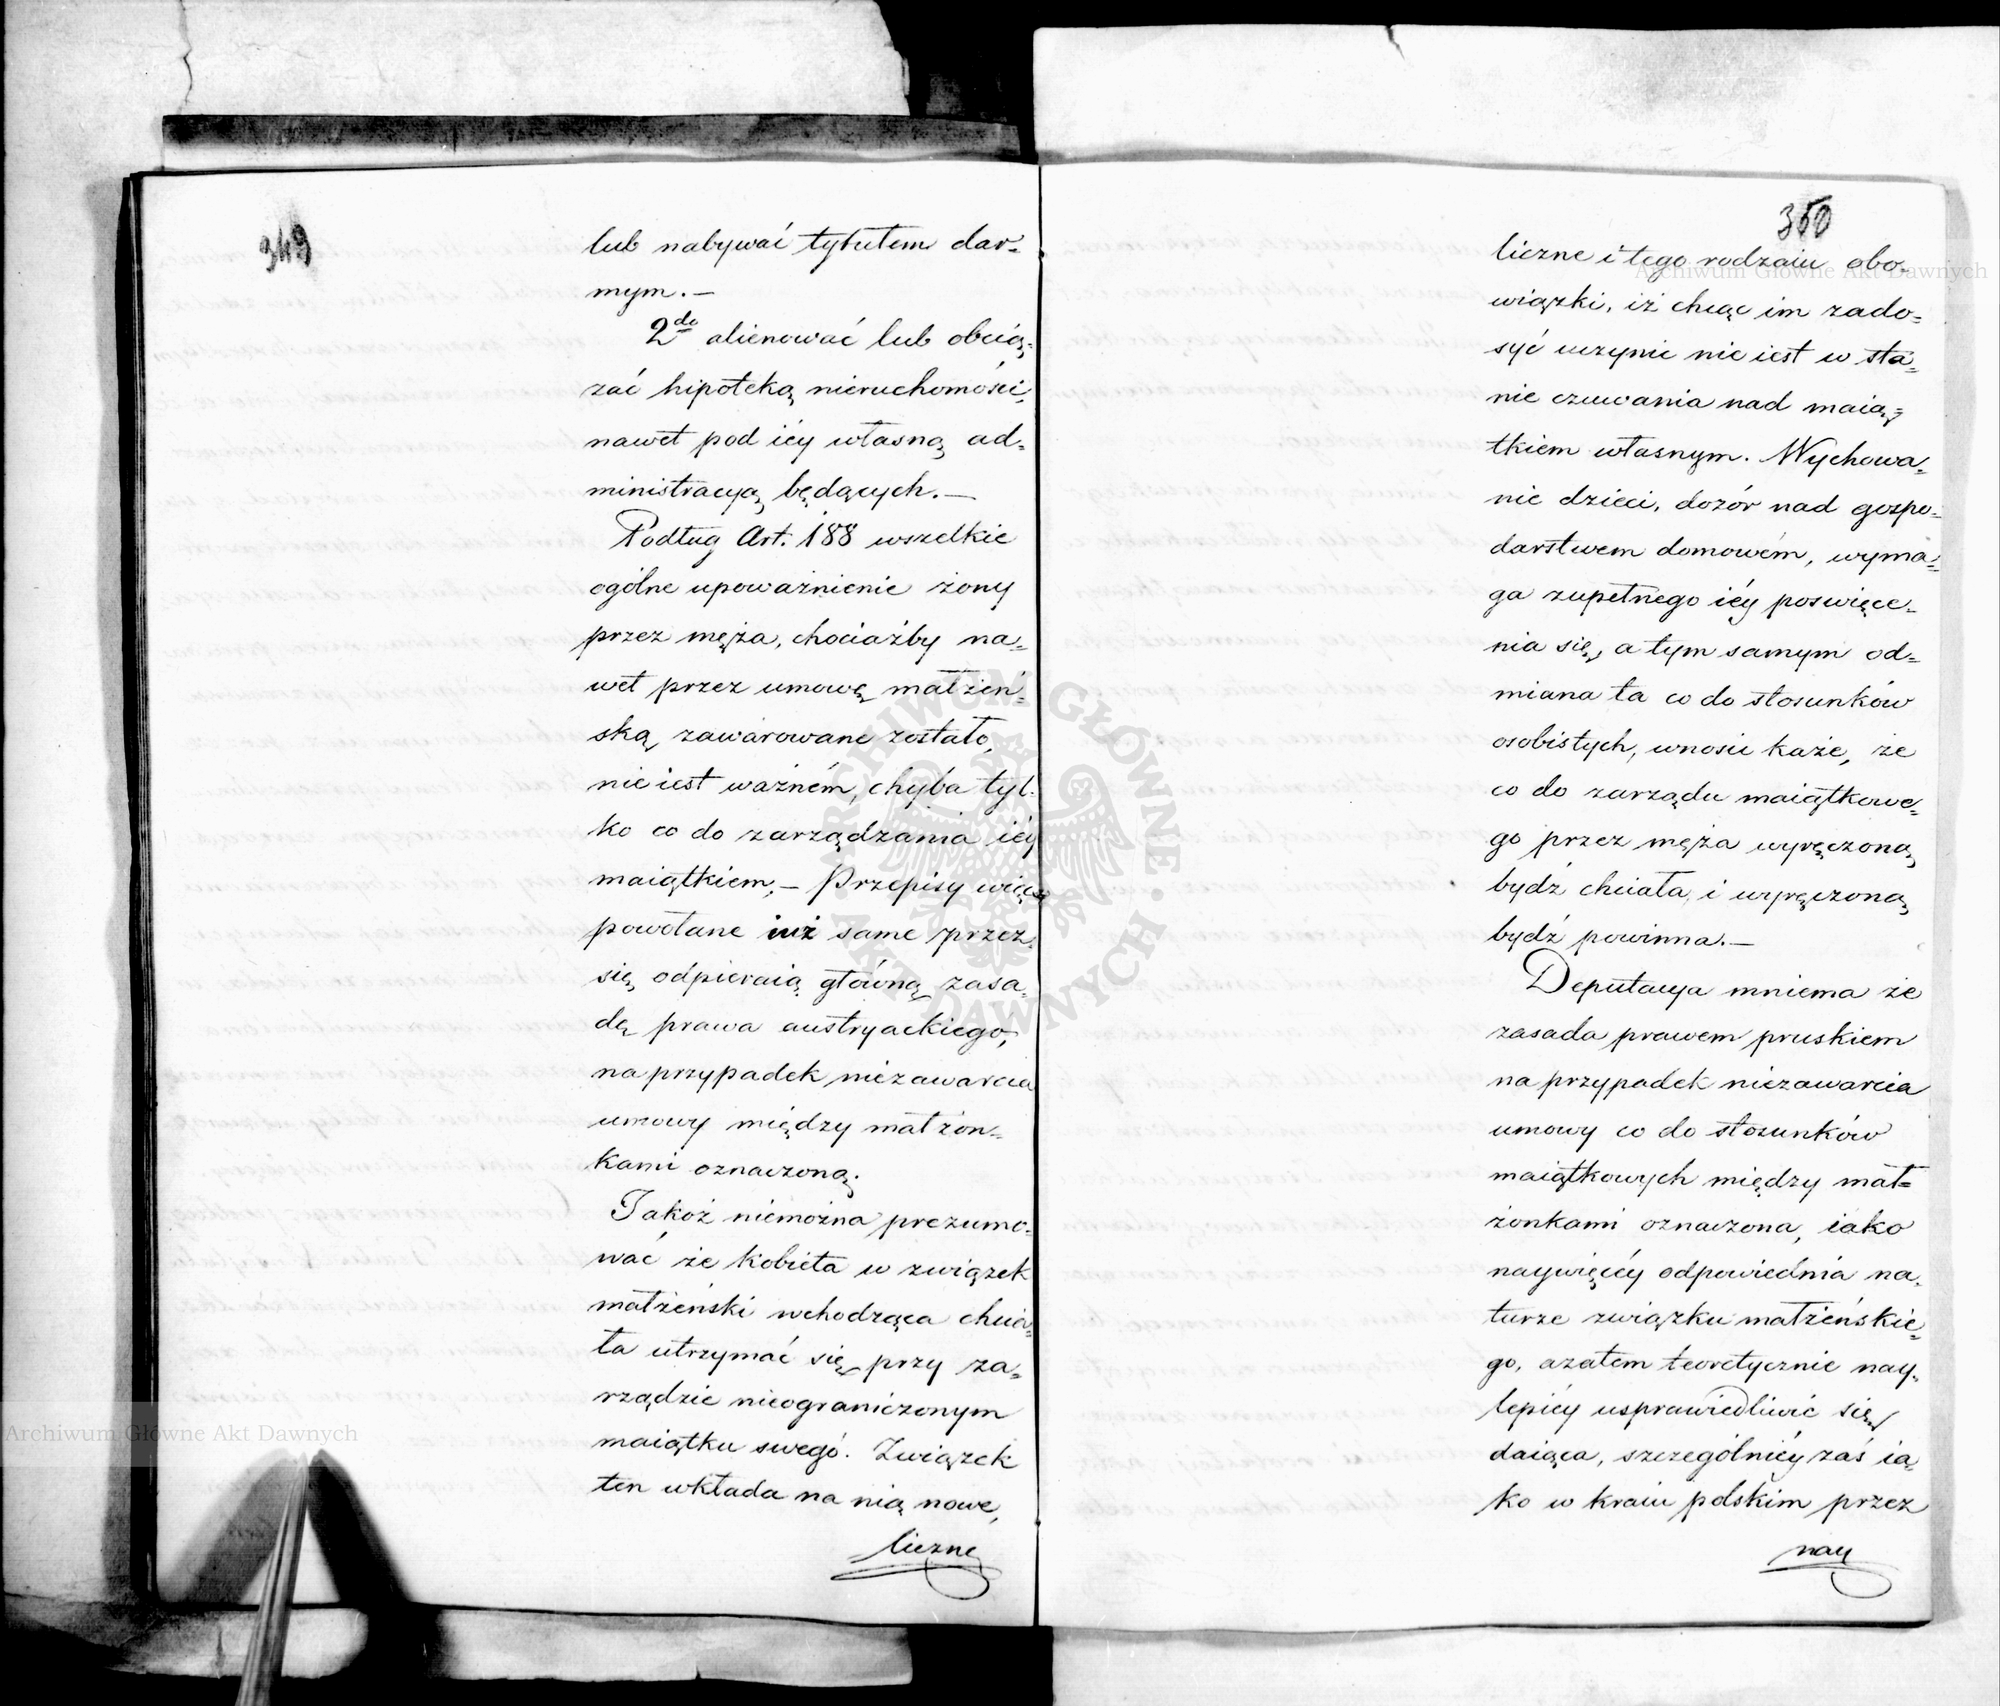 349
lub nabywać tytułem dar=
mym.—
2do alienować lub obcią=
żać hipoteką nieruchomości,
nawet pod iéy własną ad=
ministracyą będących.—
Podług Art. 188 wszelkie
ogólne upoważnienie żony
przez męża, chociażby na=
wet przez umowę małżeń=
ską zawarowane zostało,
nie iest ważném, chyba tyl=
ko co do zarządzania iéy
maiątkiem.— Przepisy więc
powołane iuż same przez
się odpieraią główną zasa=
dę prawa austryackiego,
na przypadek niezawarcia
umowy między małżon=
kami oznaczoną.
Jakoż niemożna prezumo=
wać że kobieta w związek
małżeński wchodząca chcia=
ła utrzymać się przy za=
rządzie nieograniczonym
maiątku swego. Związek
ten wkłada na nią nowe,
liczne
350
liczne i tego rodzaiu obo=
wiązki, iż chcąc im zado=
syć uczynić nie iest w sta=
nie czuwania nad maią=
tkiem własnym. Wychowa=
nie dzieci, dozór nad gospo=
darstwem domowém, wyma=
ga zupełnego iéy poswięce=
nia się, a tym samym od=
miana ta co do stosunków
osobistych, wnosić każe, że
co do zarządu maiątkowe=
go przez męża wyręczoną
bydź chciała, i wyręczoną
bydź powinna.—
Deputacya mniema że
zasada prawem pruskiem
na przypadek niezawarcia
umowy co do stosunków
maiątkowych między mał=
żonkami oznaczona, iako
naywięcéy odpowiednia na=
turze związku małżeńskie=
go, azatem teoretycznie nay=
lepiéy usprawiedliwić się
daiąca, szczególniéy zaś ia=
ko w kraiu polskim przez
nay
Archiwum Główne Akt Dawnych
Archiwum Główne Akt Dawnych
ARCHIWUM GŁÓWNE · AKT DAWNYCH ·